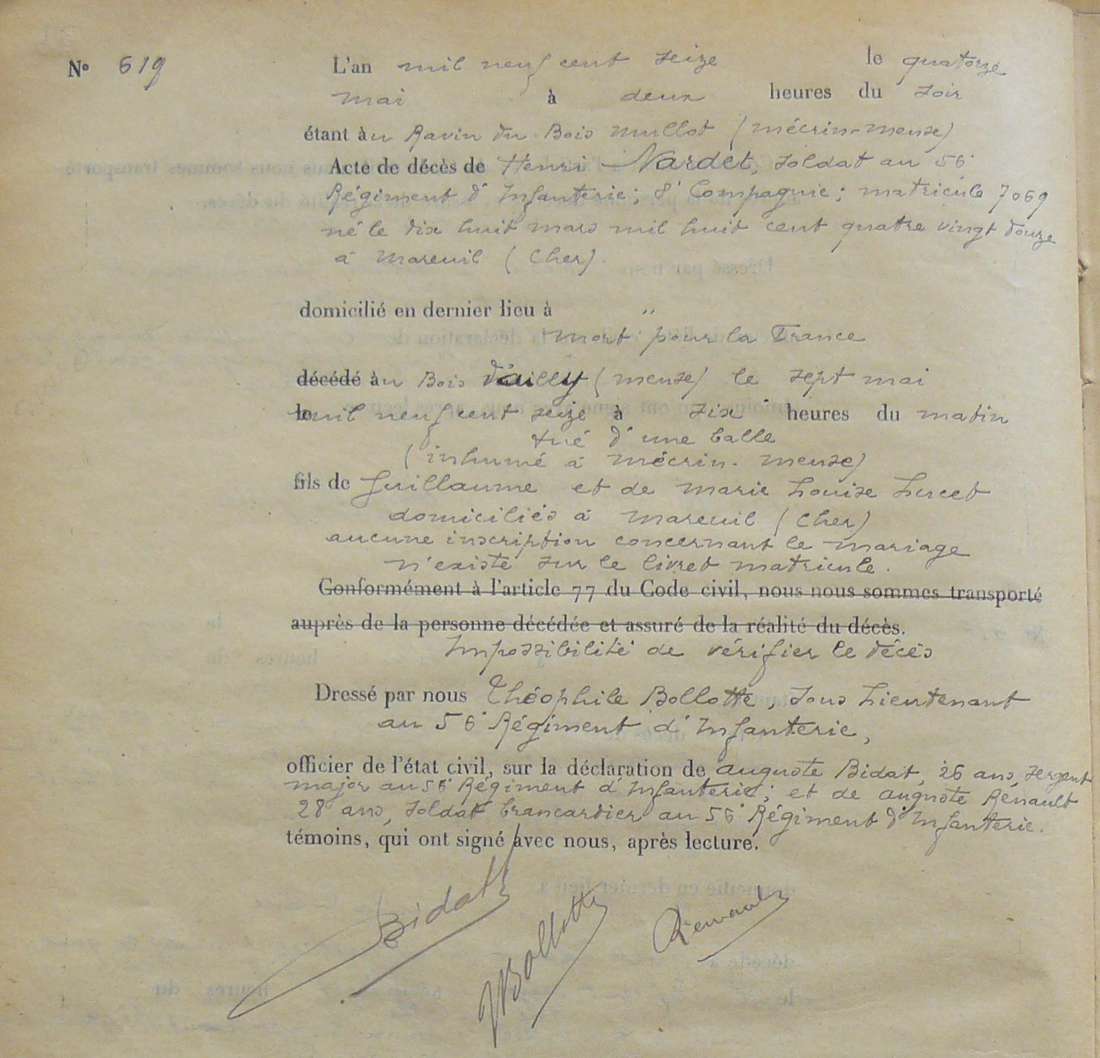 N° 619
L'an mil neuf cent seize le quatorze
mai à deux heures du soir
étant àu Ravin du Bois mullot (mécrin-meuse)
Acte de décès de Henri Nardet, soldat au 56ᵉ
Régiment d'Infanterie; 8ᵉ Compagnie; matricule 7069
né le dix huit mars mil huit cent quatre vingt douze
à Mareuil (Cher).
domicilié en dernier lieu à "
mort pour la France
décédé àu Bois d'ailly (meuse) le sept mai
le mil neuf cent seize à six heures du matin
tué d'une balle
(inhumé à mécrin - meuse)
fils de Guillaume et de marie Louise Lucet
domiciliés à mareuil (Cher)
aucune inscription concernant le mariage
n'existe sur le livret matricule.
Conformément à l'article 77 du Code civil, nous nous sommes transporté
auprès de la personne décédée et assuré de la réalité du décès.
Impossibilité de vérifier le décès
Dressé par nous Théophile Bollotte, Sous Lieutenant
au 56ᵉ Régiment d'Infanterie,
officier de l'état civil, sur la déclaration de auguste Bidat, 26 ans, sergent
major au 56ᵉ Régiment d'Infanterie; et de auguste Renault
28 ans, soldat brancardier au 56ᵉ Régiment d'Infanterie.
témoins, qui ont signé avec nous, après lecture.
Bidat Bollotte Renault